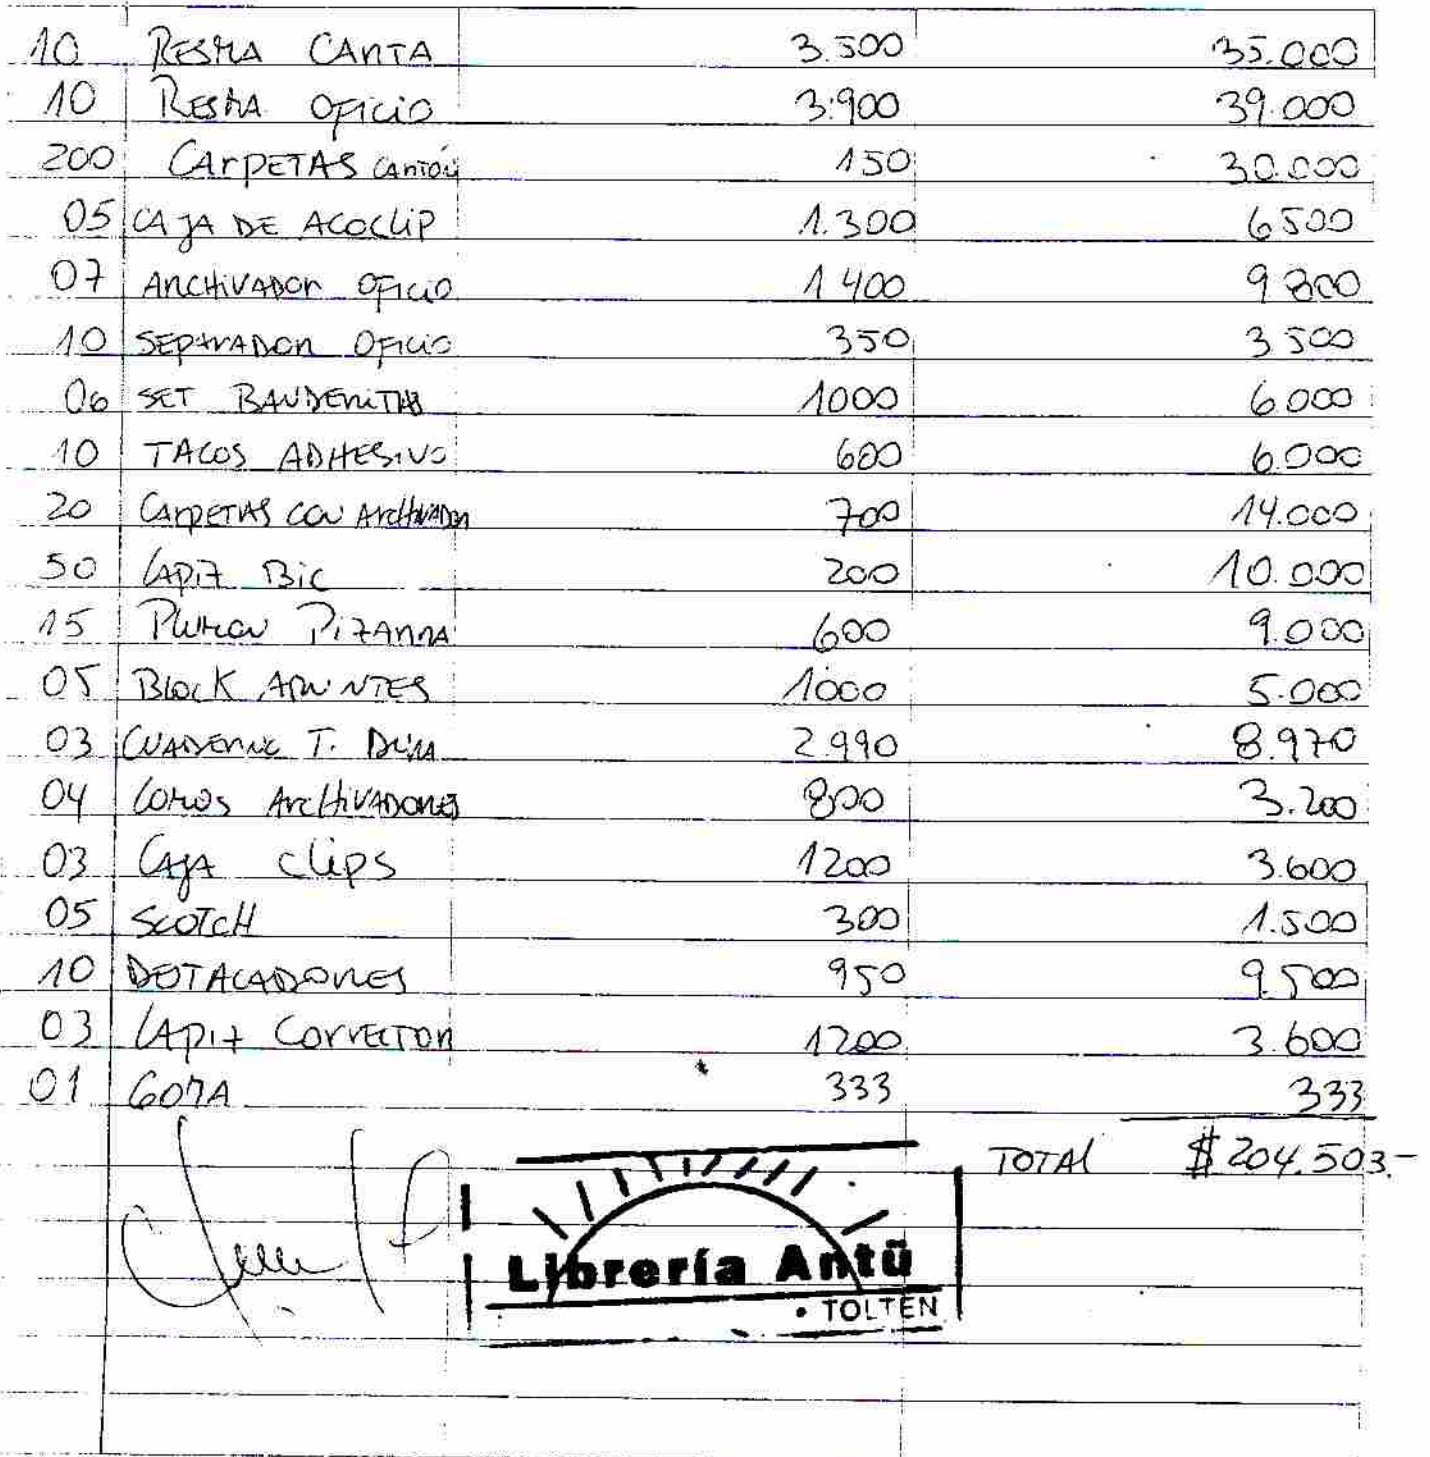 10 RESMA CARTA 3.500 35.000
10 RESMA OFICIO 3.900 39.000
200 CARPETAS CARTÓN 150 30.000
05 CAJA DE ACOCLIP 1.300 6500
07 ARCHIVADOR OFICIO 1400 9800
10 SEPARADOR OFICIO 350 3500
06 SET BANDERITAS 1000 6.000
10 TACOS ADHESIVO 600 6.000
20 CARPETAS CON ARCHIVADOR 700 14.000
50 LAPIZ BIC 200 10.000
15 PLUMON PIZARRA 600 9.000
05 BLOCK APUNTES 1000 5.000
03 CUADERNO T. DURA 2.990 8.970
04 LOMOS ARCHIVADORES 800 3.200
03 CAJA CLIPS 1200 3.600
05 SCOTCH 300 1.500
10 DETACADORES 950 9.500
03 LAPIZ CORRECTOR 1200 3.600
01 GOMA 333 333
TOTAL $ 204.503.-
Librería Antü
• TOLTEN